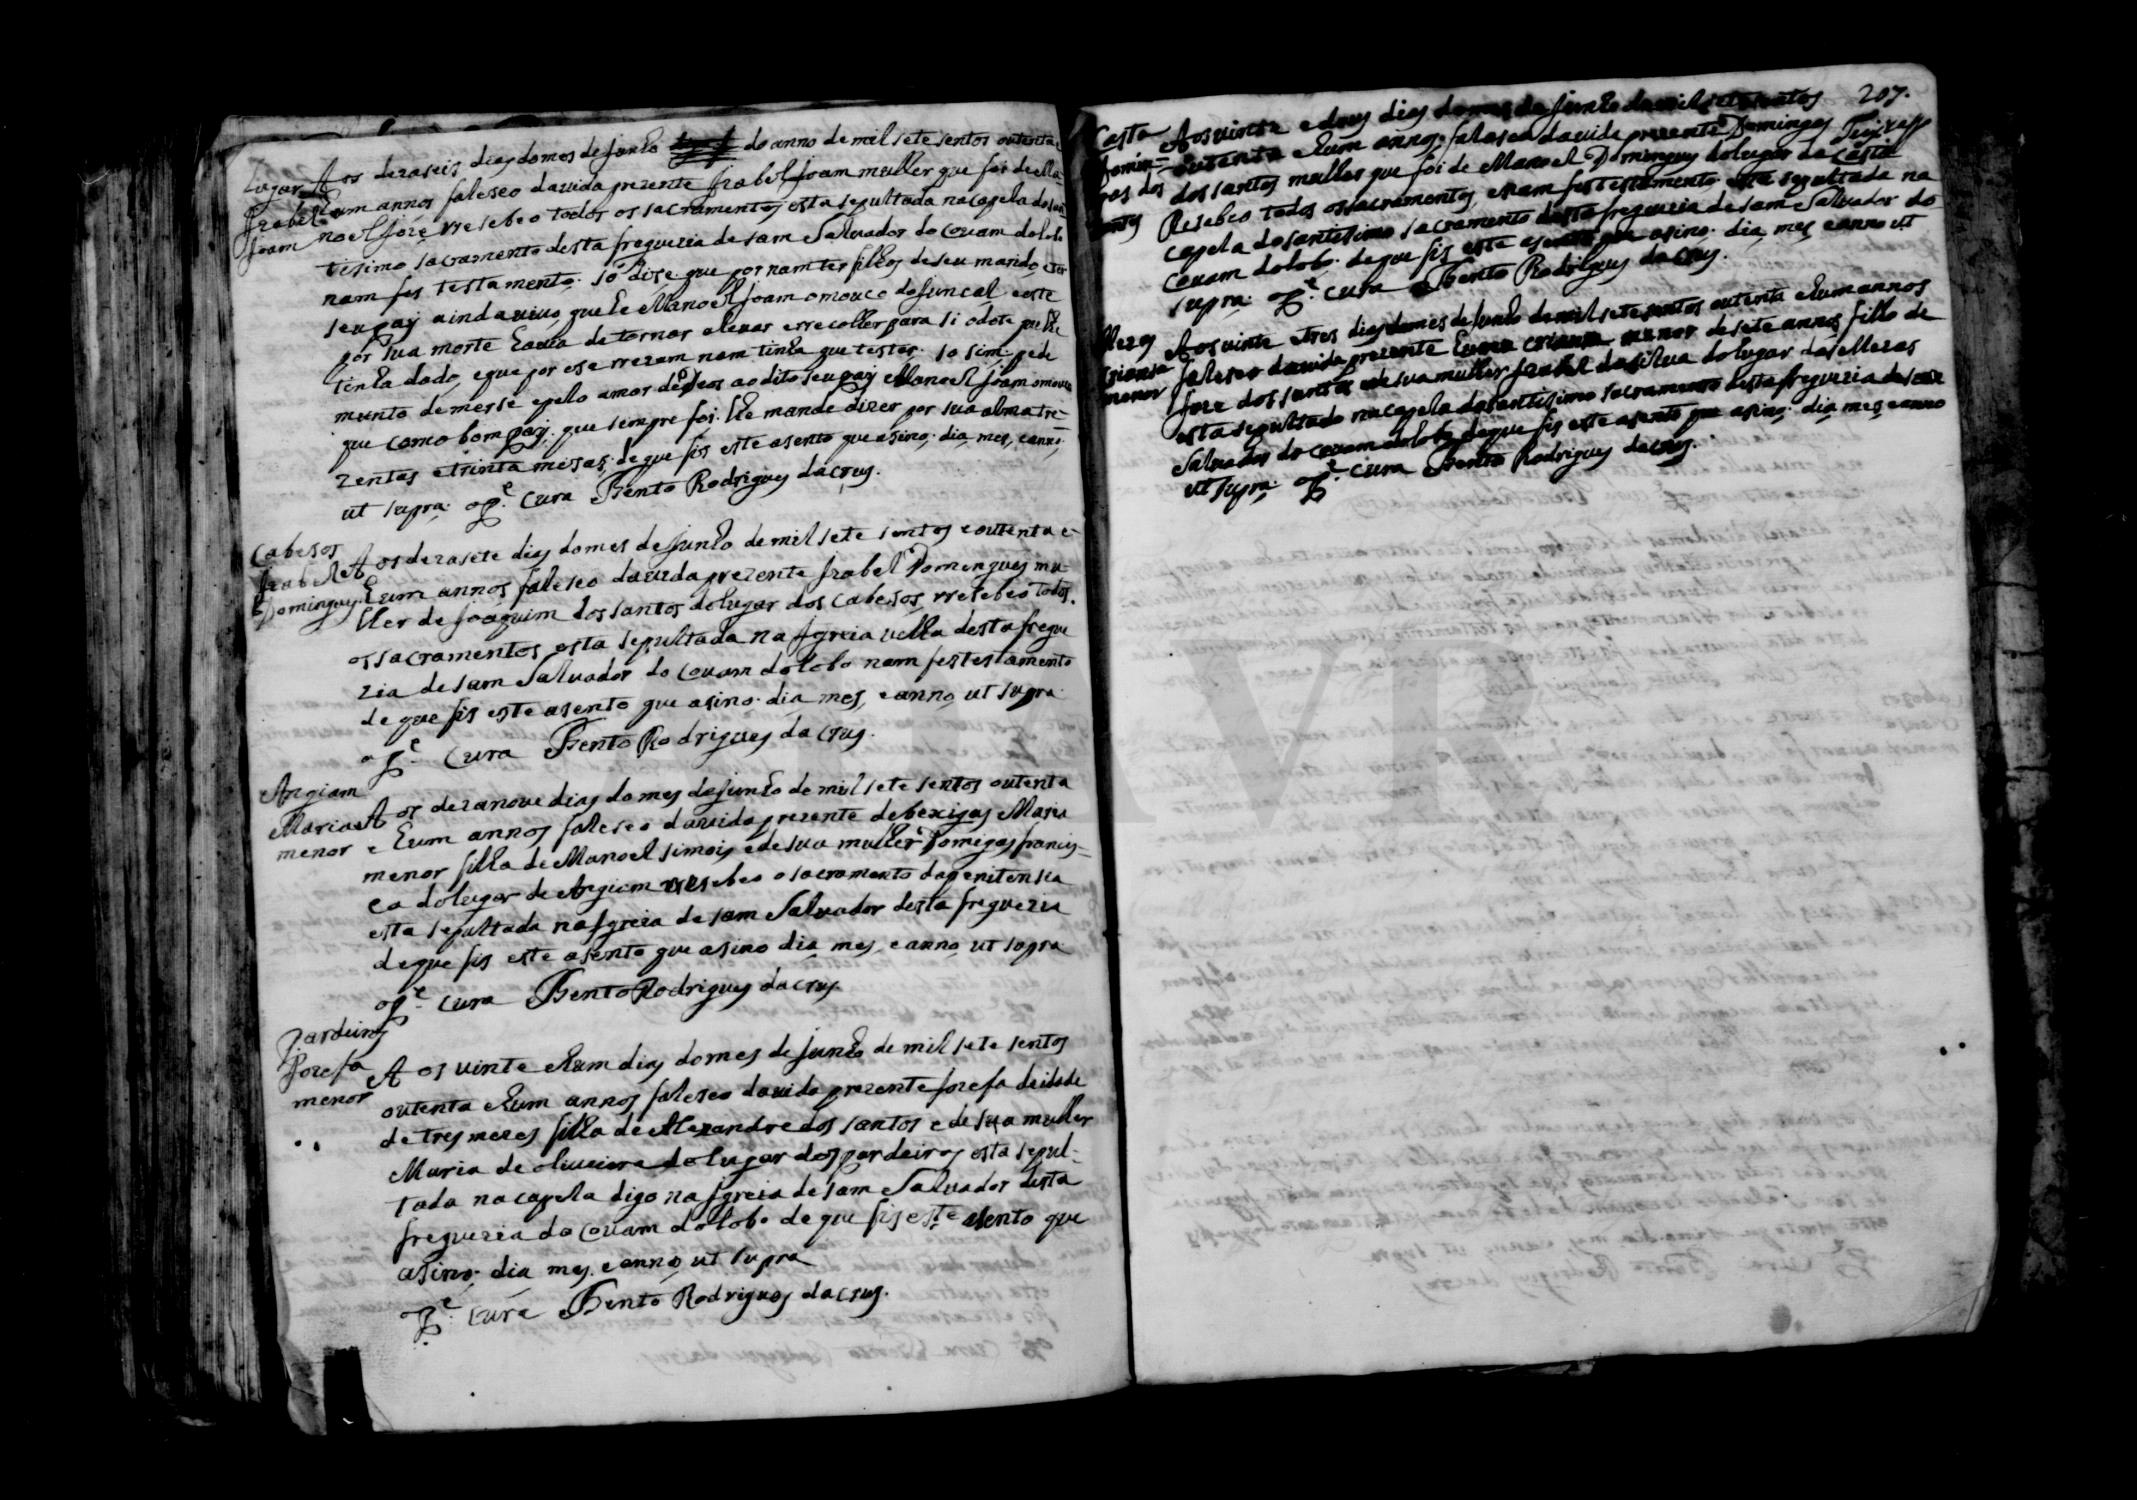 Lugar
Izabel
Joam
Aos dezaseis dias do mes de Junho do anno de mil sete sentos outenta e
hum annos faleseo da vida prezente Izabel Joam mulher que foi de Ma-
noel Joze rresebeo todos os sacramentos esta sepultada na capela do san
tisimo sacramento desta freguezia de sam Salvador do Covam do lobo
nam fes testamento. so dise que por nam ter filhos de seu marido e ter
seu pay ainda vivo, que he Manoel Joam o mouco do funcal e este
por sua morte havia de tornar a levar e rrecolher para si o dote que lhe
tinha dado, e que por ese rrezam nam tinha que testar. so sim pede
munto de merse e pelo amor de deos ao dito seu pay Manoel Joam o mouco
que como bom pay. que sempre foi. lhe mande dizer por sua alma tre-
zentas e trinta misas; de que fis este asento que asino. dia, mes, e anno,
ut supra. o Pe. Cura Bento Rodrigues da Crus.
Cabesos
Izabel
Domingues
Aos dezasete dias do mes de Junho de mil sete sentos e outenta e
hum annos faleseo da vida prezente Izabel Domingues mu-
lher de Joaquim dos santos do lugar dos Cabesos, rresebeo todos
os sacramentos esta sepultada na Igreia velha desta fregue
zia de sam Salvador do Covam do lobo nam fes testamento
de que fis este asento que asino. dia mes, e anno, ut supra.
o Pe. Cura Bento Rodrigues da Crus.
Angiam
Maria
menor
Aos dezanove dias do mes de Junho de mil sete sentos outenta
e hum annos faleseo da vida prezente de bexigas Maria
menor filha de Manoel simois e de sua mulher Domigas francis-
ca do lugar de Angiam rresebeo o sacramento da penitensia
esta sepultada na Igreia de sam Salvador desta freguezia
de que fis este asento que asino dia, mes, e anno, ut supra.
o Pe. Cura Bento Rodrigues da Crus
Pardeiros
Jozefa
menor
Aos vinte e hum dias do mes de Junho de mil sete sentos
outenta e hum annos faleseo da vida prezente Jozefa de idade
de tres mezes filha de Alexandre dos santos e de sua mulher
Maria de oliveira do lugar dos pardeiros esta sepul-
tada na capela digo na Igreia de sam Salvador desta
freguezia do Covam do lobo de que fis este asento que
asino. dia mes. e anno, ut supra
o Pe. Cura Bento Rodrigues da Crus.
207.
Casta
Domin=
gas dos
santos
Aos vinte e dous dias do mes de Junho de mil sete sentos
outenta e hum annos, faleseo da vida prezente Domingas
dos santos mulher que foi de Manoel Domingues do lugar da Casta
Resebeo todos os sacramentos, e nam fes testamento esta sepultada na
capela do santisimo sacramento desta freguezia de sam Salvador do
Covam do lobo. de que fis este asento que asino. dia, mes, e anno ut
supra. o Pe. Cura Bento Rodrigues da Crus.
Mezas
crianca
menor
Aos vinte e tres dias do mes de Junho de mil sete sentos outenta e hum annos
faleseo da vida prezente huma crianca menor de sete annos, filho de
Joze dos santos e de sua mulher Izabel da silva do lugar das Mezas
esta sepultado na capela do santisimo sacramento desta freguezia de sam
Salvador do Covam do lobo, de que fis este asento que asino. dia mes e anno
ut supra. o Pe. Cura Bento Rodrigues da Crus.
AVR